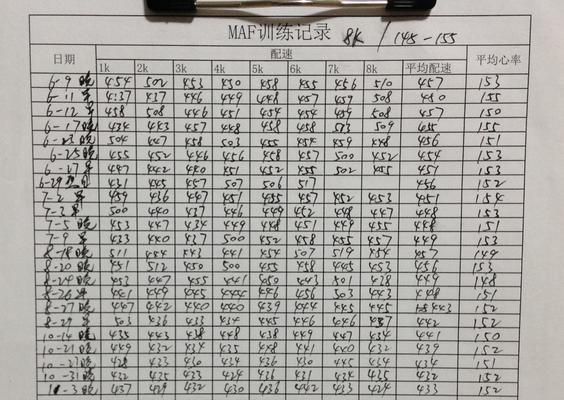 MAF训练记录 8k / 145-155
日期 配速 平均心率
1k 2k 3k 4k 5k 6k 7k 8k 平均配速
6-9 晚 454 502 453 450 458 455 456 510 457 153
6-11 早 4:37 437 446 449 448 457 459 508 450 155
6-12 早 458 508 446 451 454 454 459 508 457 150
6-17 晚 434 443 457 448 458 458 513 509 455 155
6-23 晚 504 447 458 503 455 454 459 448 456 151
6-25 晚 455 452 446 456 458 457 500 452 454 153
6-27 早 447 442 440 451 452 455 502 455 451 153
6-29 431 445 457 507 506 517 456 152
7-2 早 459 436 447 451 455 457 452 453 451 154
7-3 早 500 440 437 446 449 452 448 448 153
7-5 晚 453 447 434 449 448 451 449 455 448 151
7-9 早 433 440 437 500 452 458 455 457 449 153
8-18 晚 511 454 443 441 454 507 519 454 457 149
8-20 晚 451 512 450 500 455 458 445 453 456 153
8-24 晚 453 447 455 441 450 443 501 438 449 148
8-26 441 449 445 444 446 456 503 443 448 151
8-27 晚 447 442 440 440 439 447 446 443 152
8-29 早 503 436 433 434 445 446 446 437 442 152
10-14 晚 435 443 438 448 438 449 447 434 441 150
10-21 晚 449 432 434 435 448 441 440 432 439 152
10-27 晚 428 433 436 434 436 430 445 434 434 151
10-31 晚 432 435 433 424 436 431 434 435 432 152
晚 437 429 432 430 436 442 433 424 433 152